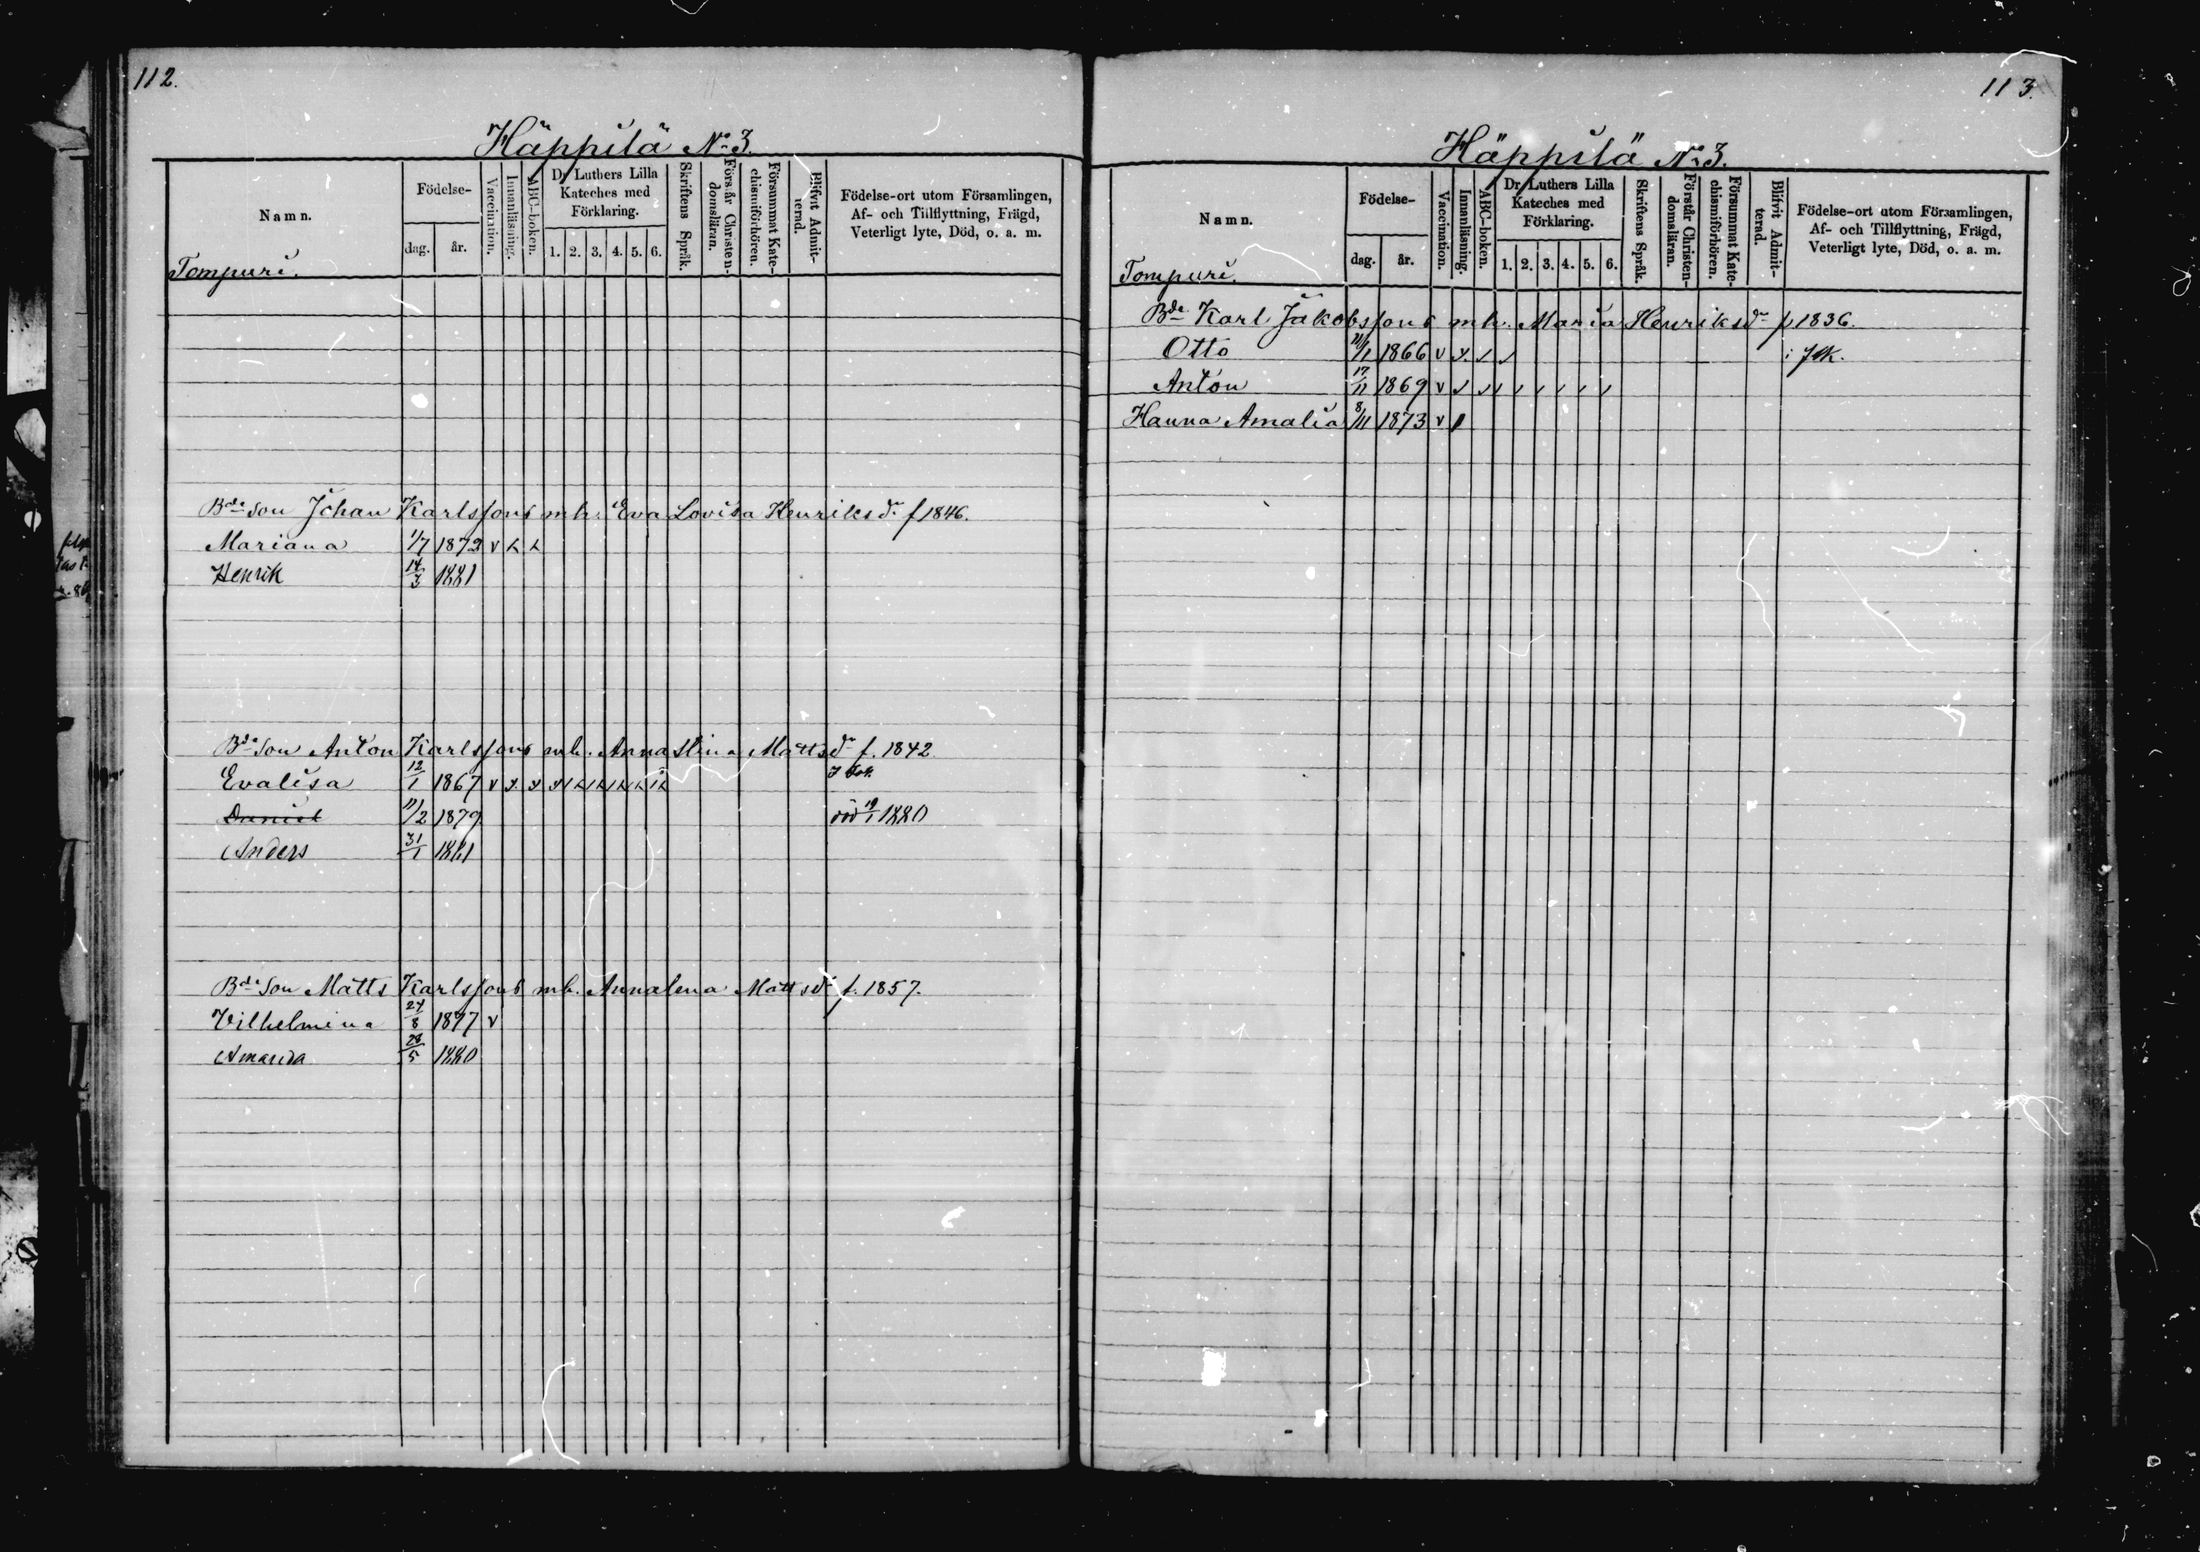 112.
Häppilä No 3.
Namn.
Födelse-
dag.
år.
Vaccination.
Innanläsning.
ABC-boken.
Dr Luthers Lilla
Kateches med
Förklaring.
1. 2. 3. 4. 5. 6.
Skriftens Språk.
Förstår Christen-
domsläran.
Försummat Kate-
chismiförhören.
Blifvit Admit-
terad.
Födelse-ort utom Församlingen,
Af- och Tillflyttning, Frägd,
Veterligt lyte, Död, o. a. m.
Tompuri.
Bde Son Johan Karlssons mh. Eva Lovisa Henriksdr f 1846.
Mariana 1/7 1872 v
Henrik 14/3 1881
Bde Son Anton Karlssons mh. Anna Stina Mattsdr f. 1842
Evalisa 12/1 1867 v
Daniel 11/2 1879 död 19/1 1880
Anders 31/1 1881
Bde Son Matts Karlssons mh. Annalena Mattsdr f. 1857.
Vilhelmina 24/8 1877 v
Amanda 28/5 1880
113.
Häppilä No 3.
Namn.
Födelse-
dag.
år.
Vaccination.
Innanläsning.
ABC-boken.
Dr Luthers Lilla
Kateches med
Förklaring.
1. 2. 3. 4. 5. 6.
Skriftens Språk.
Förstår Christen-
domsläran.
Försummat Kate-
chismiförhören.
Blifvit Admit-
terad.
Födelse-ort utom Församlingen,
Af- och Tillflyttning, Frägd,
Veterligt lyte, Död, o. a. m.
Tompuri.
Bde Karl Jakobssons mh. Maria Henriksdr f 1836.
Otto 11/1 1866 v i
Anton 17/11 1869 v
Hanna Amalia 8/11 1873 v